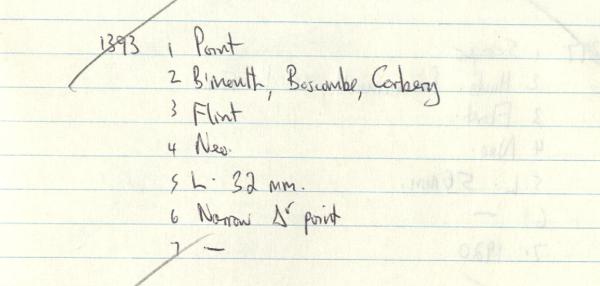 1393 1 Point
2 B'mouth, Boscombe, Carbery
3 Flint
4 Neo.
5 L. 32 mm.
6 Narrow Δr point
7 —